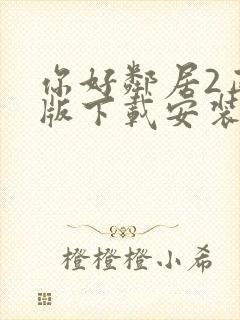 你好鄰居2
版下載安裝
橙橙橙小希